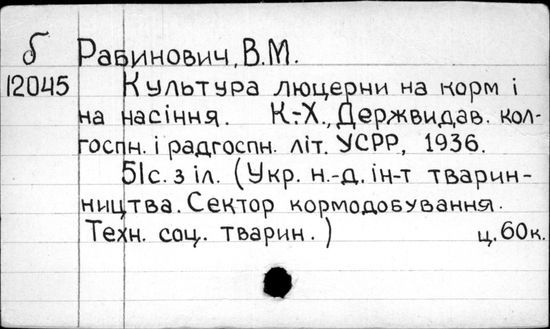 б Рабинович, В.М.
12045 Культура люцерни на корм і
на насіння. К.-Х., Держвидав. кол-
госпн. і радгоспн. літ. УСРР, 1936.
51с. з іл. (Укр. н.-д. ін-т тварин-
ництва. Сектор кормодобування.
Техн. соц. тварин.) ц. 60к.